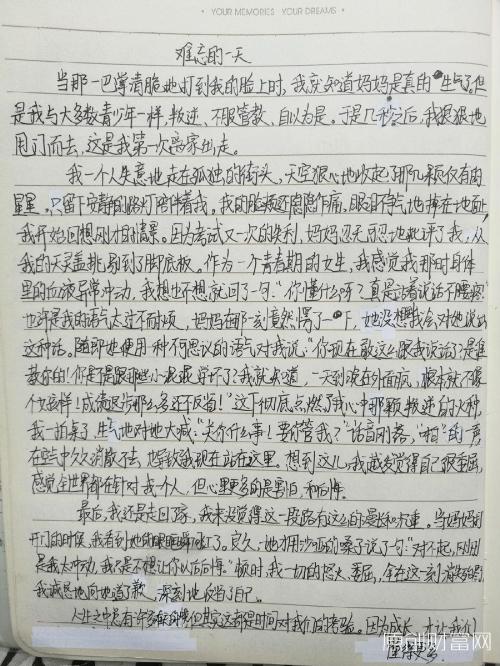 • YOUR MEMORIES YOUR DREAMS •
难忘的一天
当那一巴掌清脆地打到我的脸上时，我就知道妈妈是真的生气了。但
是我与大多数青少年一样，叛逆、不服管教、自以为是。于是几秒之后，我狠狠地
甩门而去，这是我第一次离家出走。
我一个人失意地走在孤独的街头，天空狠心地收起了那几颗仅有的
星星，只留下安静的路灯陪伴着我。我的脸颊还隐隐作痛，眼泪不争气地掉在地面，
我开始回想刚才的情景。因为考试又一次的失利，妈妈忍无可忍地批评了我，从
我的天灵盖批到了脚底板。作为一个青春期的女生，我感觉我那时身体
里的血液异常冲动，我想也不想就回了一句：“你懂什么呀？真是站着说话不腰疼！”
也许是我的语气太过不耐烦，妈妈在那一刻竟然愣了一下，她没想我会对她说出
这种话。随即她使用一种不可思议的语气对我说：“你现在敢这么跟我说话了？是谁
教你的！你是不是跟那些小混混学坏了？我就知道，一天到晚在外面疯，根本就不像
个女孩样！成绩退步那么多还不反省！”这下彻底点燃了我心中那颗叛逆的火种，
我一拍桌子，生气地对她大喊：“关你什么事！要你管我？”话音刚落，“啪”的一声
在空气中久久消散不去，也导致我现在站在这里。想到这儿，我越发觉得自己很委屈，
感觉全世界都在针对我一个人，但心里更多的是害怕和后悔。
最后，我还是走回了家，我来没觉得这一段路有这么的漫长和沉重。当妈妈
开门的时候，我看到她的眼睛瞬间红了。良久，她才用沙哑的嗓子说了句：“对不起，刚刚
是我太冲动，我只是不想让你以后后悔。”顿时，我一切的怒火、委屈，全在这一刻消失殆尽，
我诚恳地向她道了歉，深刻地检讨了自己。
人生之中总有许多但其实这都是时间对我们的考验。因为成长，才让我们
原创财富网